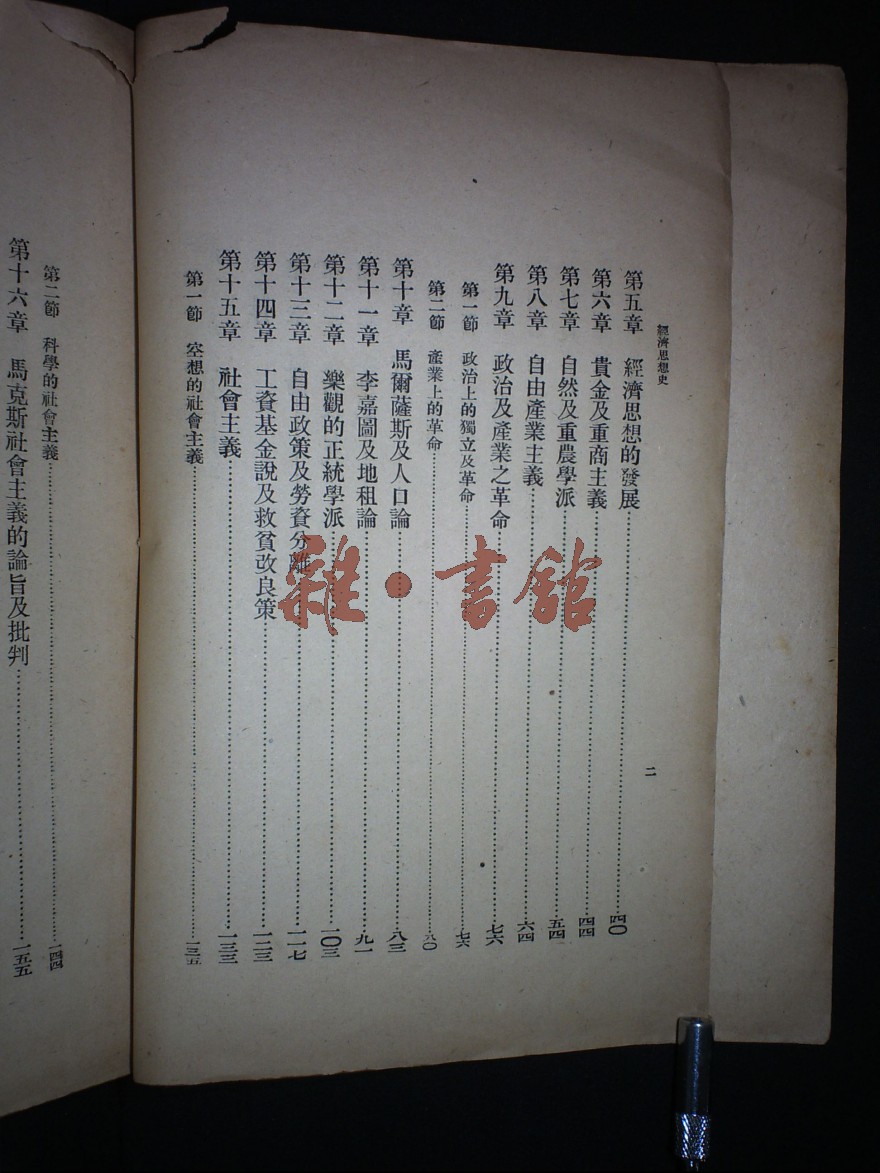 經濟思想史
二
第五章 經濟思想的發展 四〇
第六章 貴金及重商主義 四四
第七章 自然及重農學派 五四
第八章 自由產業主義 六四
第九章 政治及產業之革命 七六
第一節 政治上的獨立及革命 七六
第二節 產業上的革命 八〇
第十章 馬爾薩斯及人口論 八三
第十一章 李嘉圖及地租論 九一
第十二章 樂觀的正統學派 一〇三
第十三章 自由政策及勞資分離 一一七
第十四章 工資基金說及救貧改良策 一二三
第十五章 社會主義 一三三
第一節 空想的社會主義 一三五
第二節 科學的社會主義 一四四
第十六章 馬克斯社會主義的論旨及批判 一五五
雜·書館